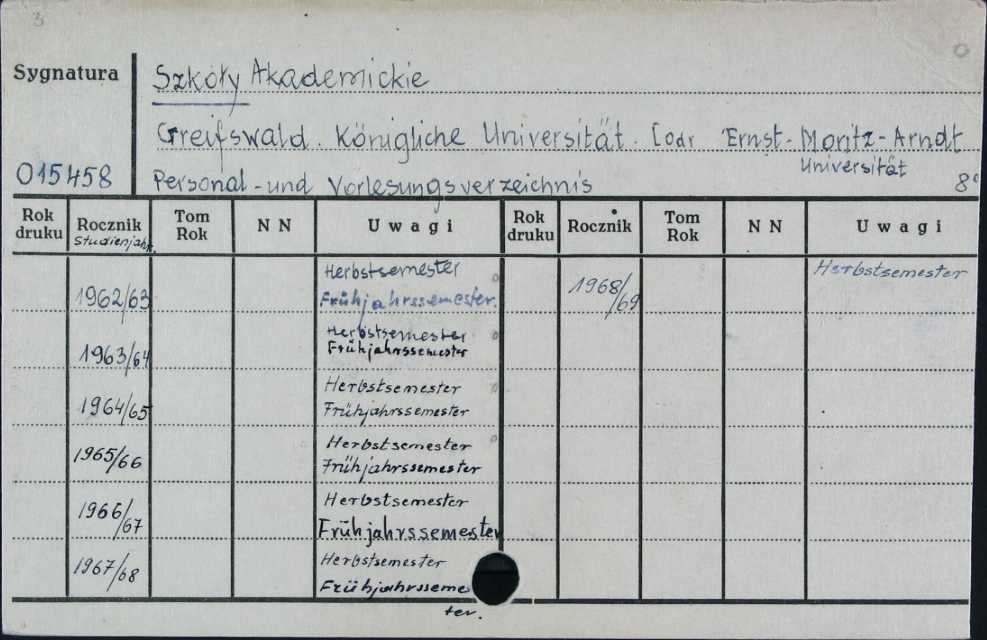 3
Sygnatura
Szkoły Akademickie
Greifswald. Königliche Universität. Ernst-Moritz-Arndt
Universität
015458
Personal-und Vorlesungsverzeichnis 8°
Rok druku Rocznik Tom Rok N N Uwagi Rok druku Rocznik Tom Rok N N Uwagi
Studienjahr.
Herbstsemester Herbstsemester
1962/63 Frühjahrssemester. 1968/69
Herbstsemester
1963/64 Frühjahrssemester
Herbstsemester
1964/65 Frühjahrssemester
Herbstsemester
1965/66 Frühjahrssemester
Herbstsemester
1966/67 Frühjahrssemester
Herbstsemester
1967/68 Frühjahrsseme
ter.